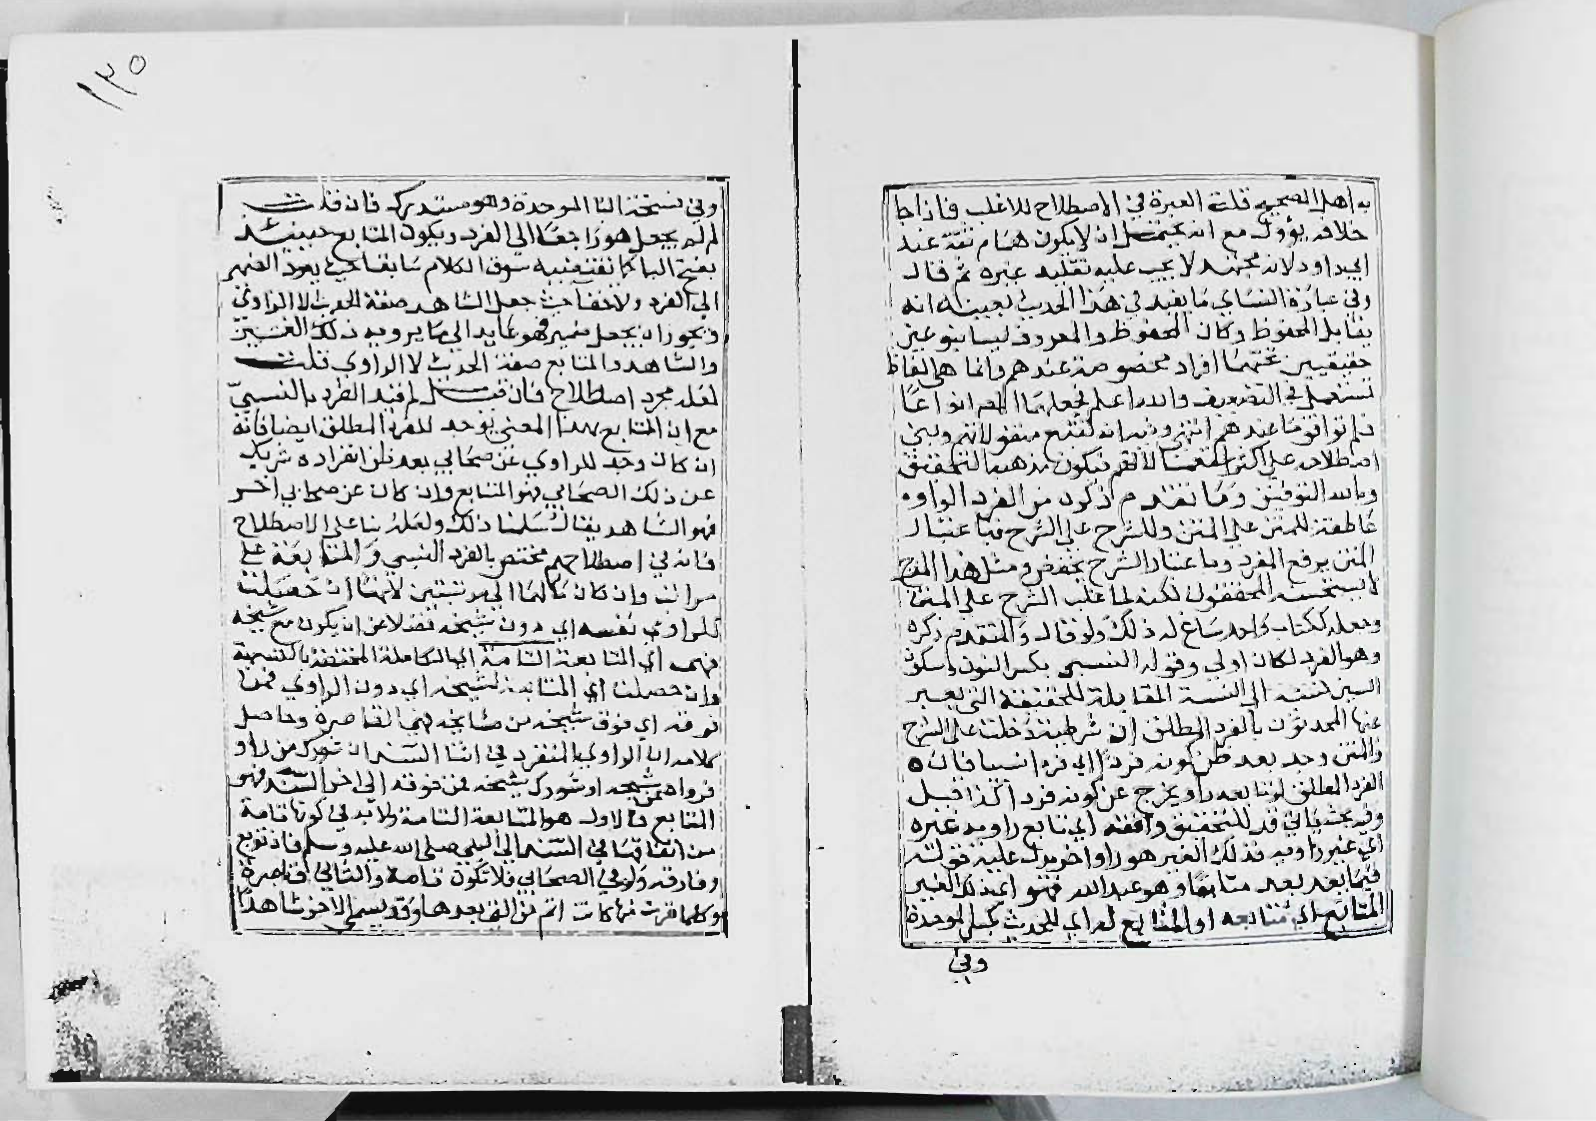 به اهل الصحيح قلت العبرة في الاصطلاح للاغلب فاذا جا
خلافه يؤول مع انه يحتمل ان لا يكون همام ثقة عند
ابي داود لانه مجتهد لا يجب عليه تقليد غيره ثم قال
وفي عبارة النسائي ما يفيد في هذا الحديث بعينه انه
يقابل المحفوظ وكان المحفوظ والمعروف ليسا بنوعين
حقيقيين تحتهما افراد مخصوصة عندهم وانما هي الفاظ
تستعمل في التضعيف والله اعلم فجعلهما انواعا
فلم توافق ما عندهم انتهى
اصطلاحه على
وبالله التوفيق وما تقدم ذكره من الفرد الواو
عاطفة للمتن على المتن وللشرح على الشرح فباعتبار
المتن يرفع الفرد وباعتبار الشرح يخفض ومثل هذا المزج
لا يستحسنه المحققون لكنه لما غلب الشرح على المتن
وجعله ككتاب واحد ساغ له ذلك ولو قال والمتقدم ذكره
وهو الفرد لكان اولى وقوله النسبي بكسر النون وسكون
السين نسبة الى النسبة المقابلة للحقيقة التي يعبر
عنها المحدثون بالفرد المطلق ان شرطية دخلت على الشرح
والمتن وجد بعد ظن كونه فردا اي فردا نسبيا فان
الفرد المطلق لو تابعه راو يخرج عن كونه فردا كذا قيل
وفيه بحث ياتي قد للتحقيق وافقه اي تابع راويه غيره
اي غير راويه فذلك الغير هو راو اخر يدل عليه قوله
فيما بعد بعد متابعا وهو عبد الله فهو اي ذلك الغير
المتابع اي متابعه او المتابع له اي للحديث بكسر الموحدة
وفي
١٣٥
وفي نسخة التا الموحدة وهو مستدرك فان قلت
لم لم يجعل هو راجعا الى الفرد ويكون المتابع حينئذ
بفتح البا كما يقتضيه سوق الكلام سابقا حيث يعود الضمير
الى الفرد ولا خفا حيث جعل الشاهد صفة الحديث لا الراوي
فيجوز ان يجعل ضمير فهو عايد الى ما يرويه ذلك الغير
والشاهد والمتابع صفة الحديث لا الراوي قلت
لعله مجرد اصطلاح فان قيل لم قيد الفرد بالنسبي
مع ان المتابع بهذا المعنى يوجد للفرد المطلق ايضا فانه
ان كان وجد للراوي عن صحابي بعد ظن انفراده شريك
عن ذلك الصحابي فهو المتابع وان كان عن صحابي اخر
فهو الشاهد يقال سلمنا ذلك ولعله بنا على الاصطلاح
فانه في اصطلاحهم مختص بالفرد النسبي والمتابعة على
مراتب وان كان مالها الى مرتبتين لانها ان حصلت
للراوي نفسه اي دون شيخه فضلا عن ان يكون مع شيخه
فهي اي المتابعة التامة اي الكاملة المختصة بالتسمية
وان حصلت اي المتابعة لشيخه اي دون الراوي فمن
فوقه اي فوق شيخه من مشايخه فهي القاصرة وحاصل
كلامه ان الراوي المنفرد في اثنا السند ان شورك من راو
فرواه عن شيخه او شورك شيخه فمن فوقه الى اخر السند فهو
المتابع فالاول هو المتابعة التامة ولا بد في كونها تامة
من اتفاقهما في السند الى النبي صلى الله عليه وسلم فاذ توبع
وفارقه ولو في الصحابي فلا تكون تامة والثاني قاصرة
وكلما قربت منها كانت اتم من التي بعدها وقد يسمى الاخر شاهدا